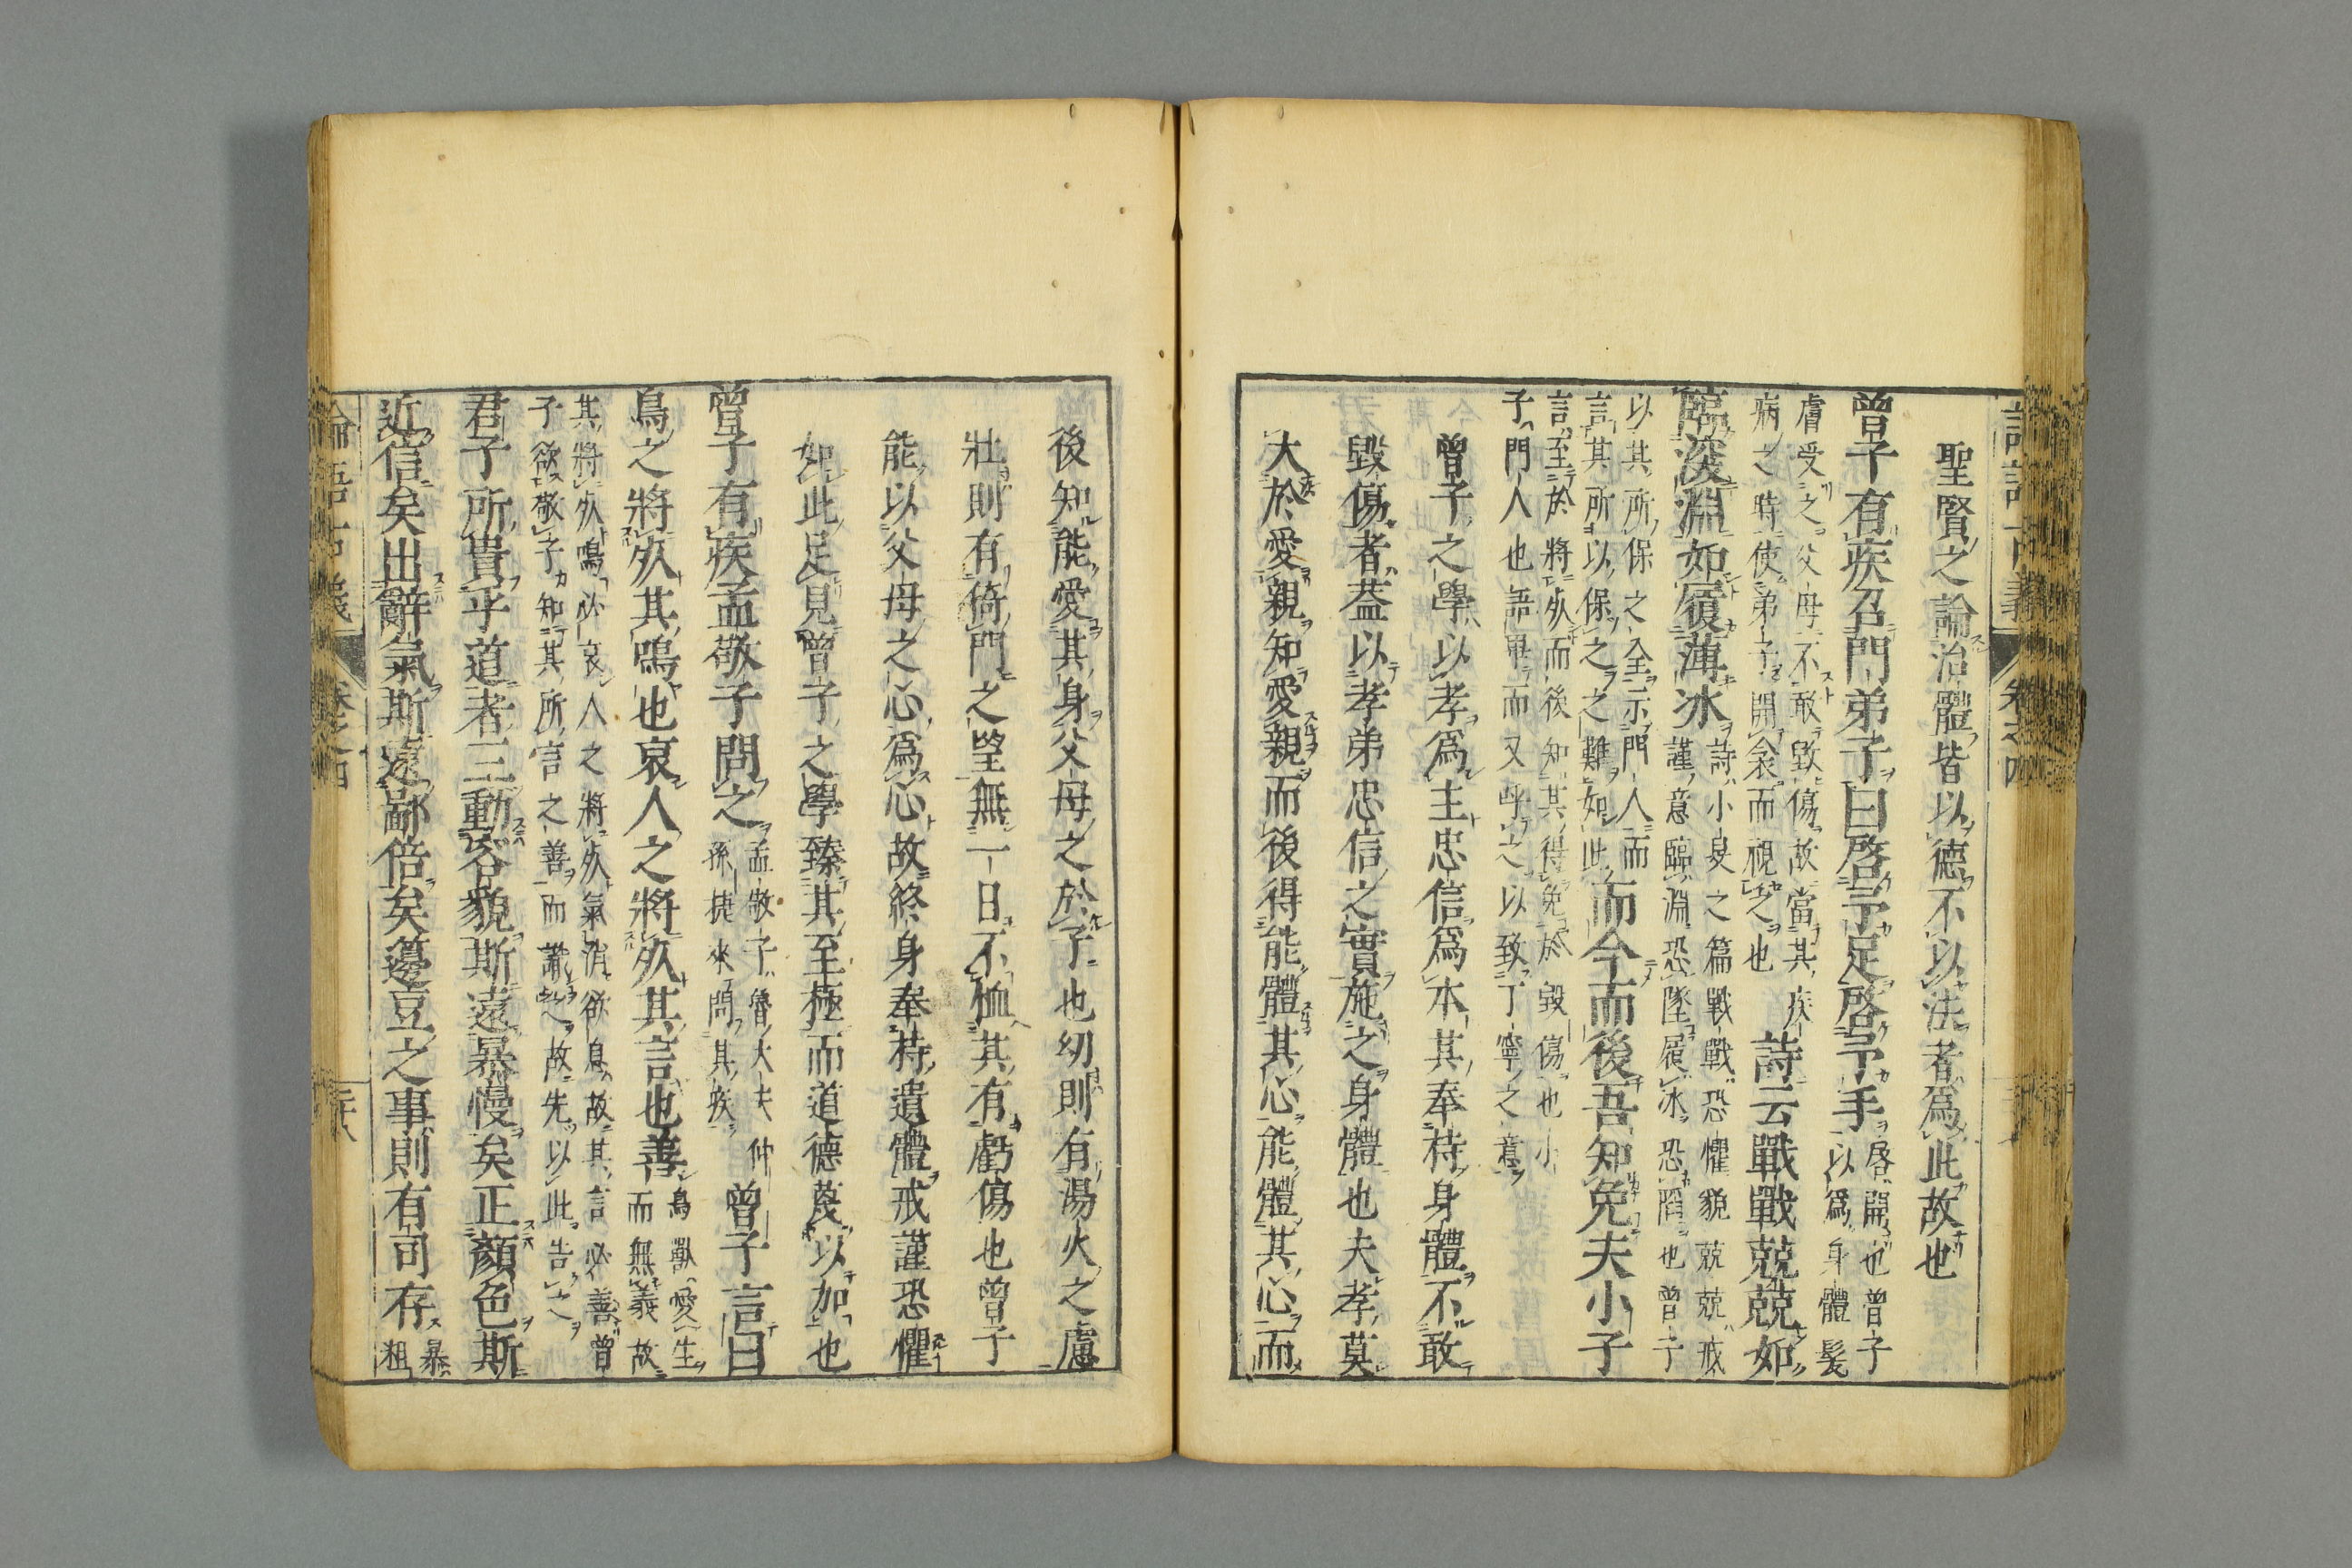 聖賢之論治體皆以德不以法者爲此故也
曾子有疾召門弟子曰啓予足啓予手啓開也曾子
以爲身體髮
膚受之父母不敢毀傷故當其疾
病之時使弟子開衾而視之也詩云戰戰兢兢如
臨深淵如履薄冰詩小旻之篇戰戰恐懼貌兢兢戒
謹意臨淵恐墜履冰恐陷也曾子
以其所保之全示門人而
言其所以保之之難如此而今而後吾知免夫小子
言至於將死而後知其得免於毀傷也小
子門人也語畢而又呼之以致丁寧之意
曾子之學以孝爲主忠信爲本其奉持身體不敢
毀傷者蓋以孝弟忠信之實施之身體也夫孝莫
大於愛親知愛親而後得能體其心能體其心而
後知能愛其身父母之於子也幼則有湯火之慮
壯則有倚門之望無一日不恤其有虧傷也曾子
能以父母之心爲心故終身奉持遺體戒謹恐懼
如此足見曾子之學臻其至極而道德蔑以加也
曾子有疾孟敬子問之孟敬子魯大夫仲
孫捷來問其疾曾子言曰
鳥之將死其鳴也哀人之將死其言也善鳥獸愛生
而無義故
其將死鳴必哀人之將死氣消欲息故其言必善曾
子欲敬子知其所言之善而識之故先以此告之
君子所貴乎道者三動容貌斯遠暴慢矣正顏色斯
近信矣出辭氣斯遠鄙倍矣籩豆之事則有司存暴
粗
論語古義 卷之四 二十八